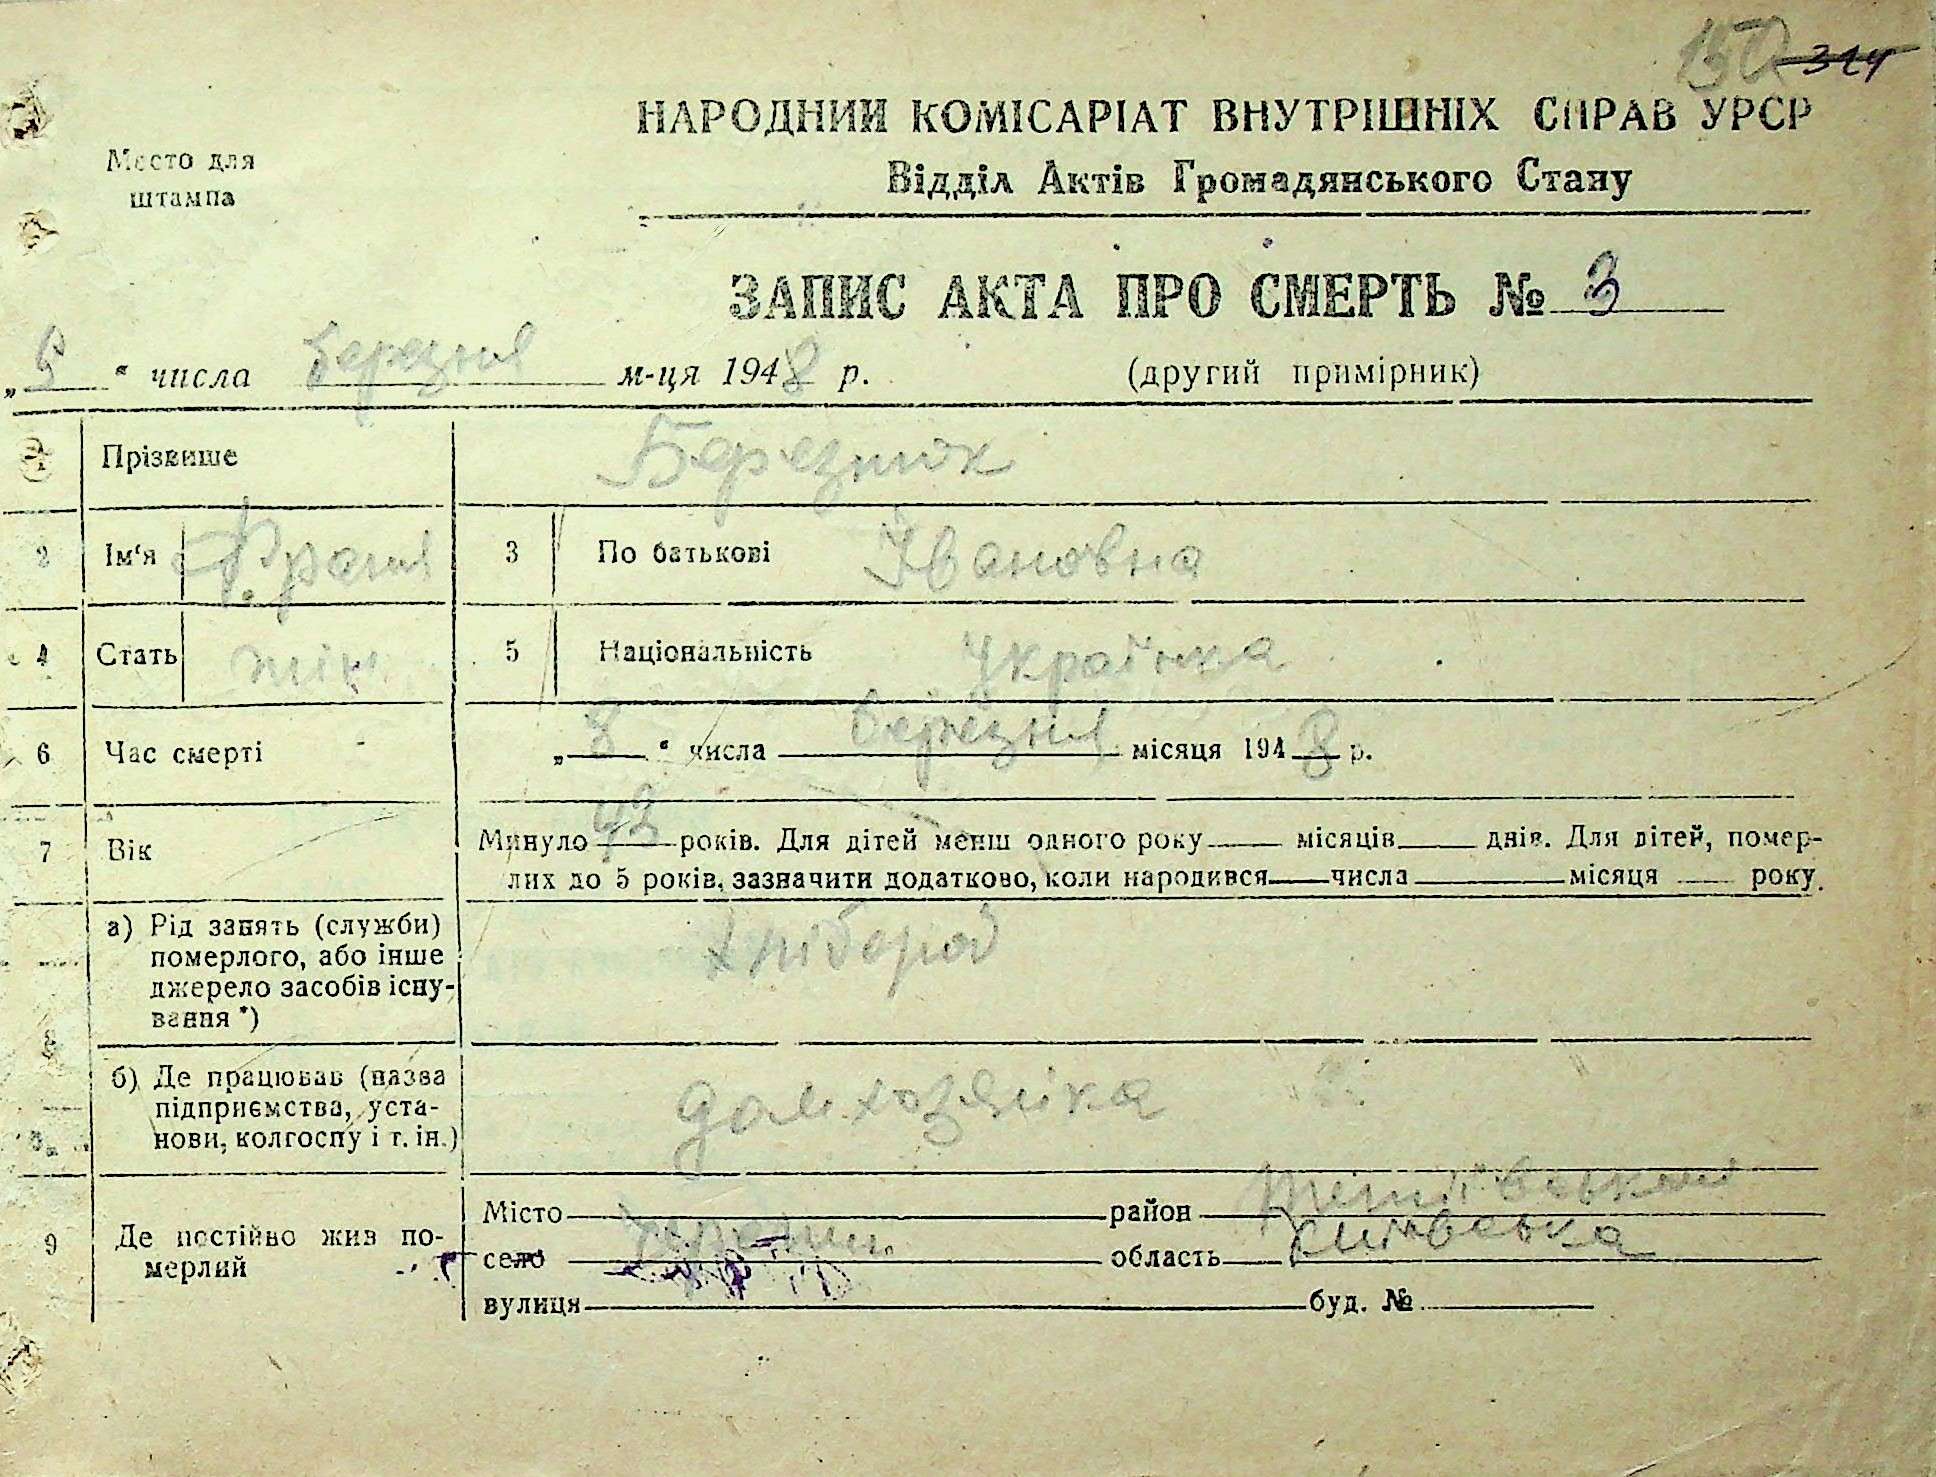 150 314
НАРОДНИЙ КОМІСАРІАТ ВНУТРІШНІХ СПРАВ УРСР
Место для
штампа
Відділ Актів Громадянського Стану
ЗАПИС АКТА ПРО СМЕРТЬ № 3
„9“ числа березня м-ця 1948 р. (другий примірник)
Прізвише Березнюк
2 Ім‘я Франя 3 По батькові Івановна
4 Стать жін. 5 Національність Українка
6 Час смерті „8“ числа березня місяця 1948 р.
7 Вік Минуло 42 років. Для дітей менш одного року місяців днів. Для дітей, помер-
лих до 5 років, зазначити додатково, коли народився числа місяця року.
а) Рід занять (служби) хлібороб
померлого, або інше
джерело засобів існу-
вання *)
8
б) Де працював (назва домхозяйка
підприємства, уста-
нови, колгоспу і т. ін.)
9 Де постійно жив по-
мерлий
Місто район
село область
вулиця буд. №